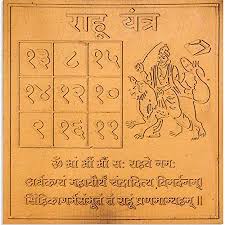 राहू यंत्र
१३ ८ १५
१४ १२ १०
९ १६ ११
ॐ भ्रां भ्रीं भ्रौं सः राहवे नमः
अर्धकायं महावीर्यं चंद्रादित्य विमर्दनम्
सिंहिकागर्भसंभूतं तं राहू प्रणमाम्यहम्